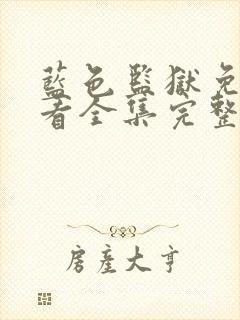 藍色監獄免
看全集完整
房產大亨